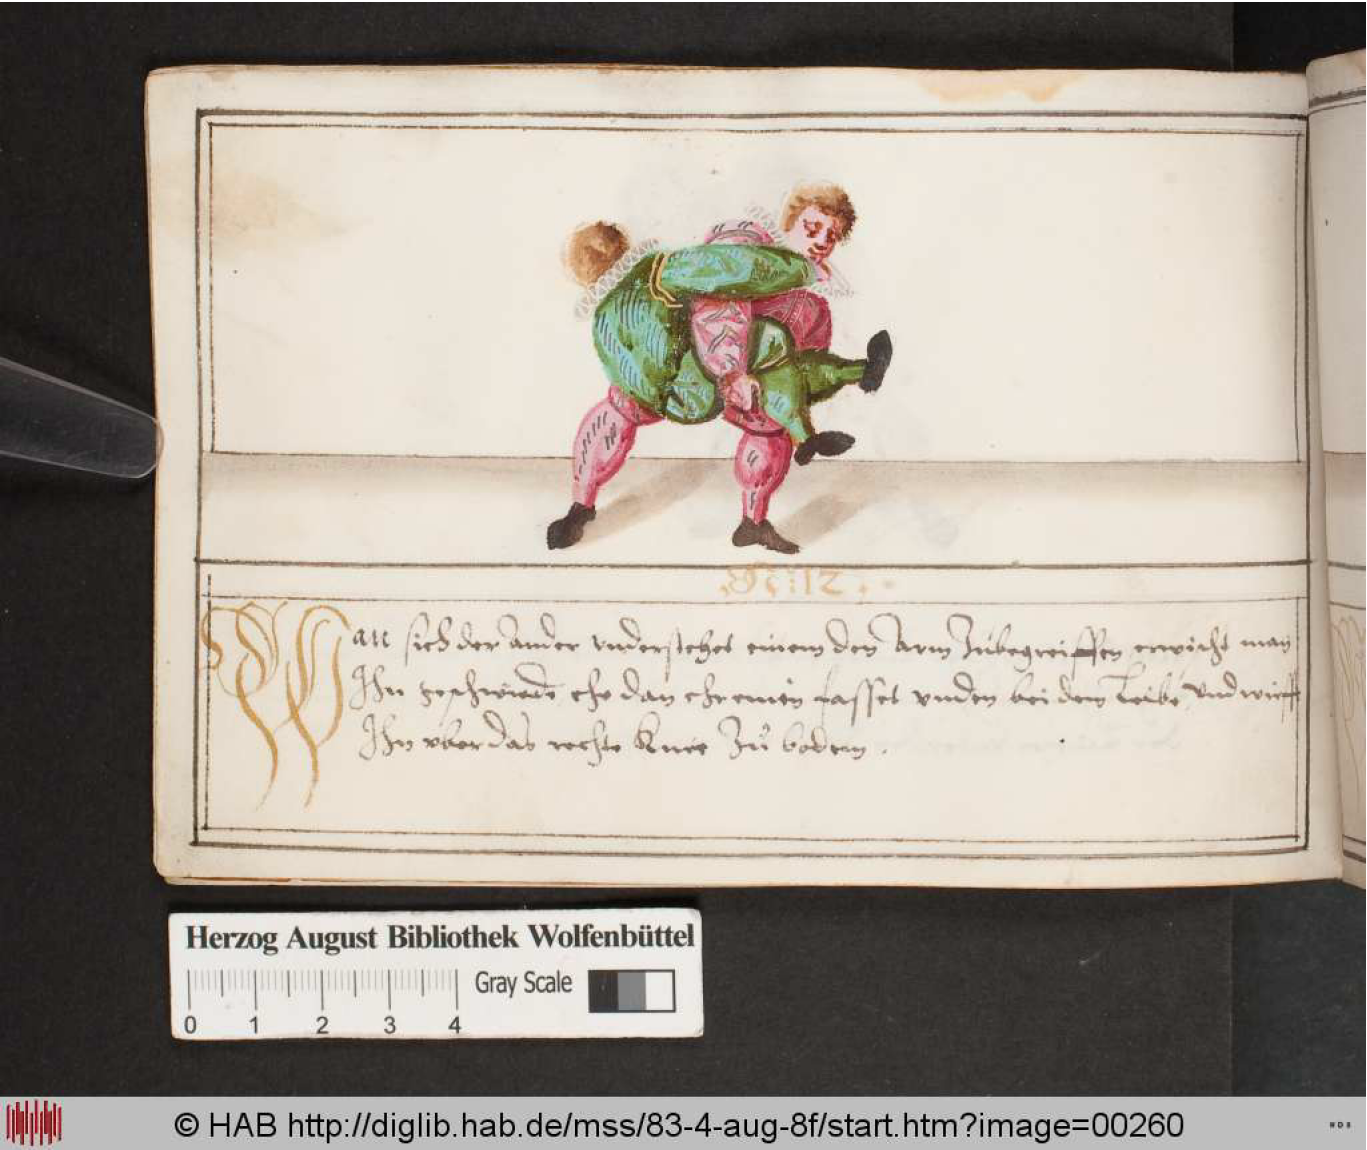 Wan sich der ander understehet einem den Arm Zubegreiffen erwischt man
Ihn geschwinde ehe dan ehr einen fasset unden bei dem Leibe, und wirfft
Ihn uber das rechte Knee Zu bodem.
Herzog August Bibliothek Wolfenbüttel
Gray Scale
0 1 2 3 4
© HAB http://diglib.hab.de/mss/83-4-aug-8f/start.htm?image=00260